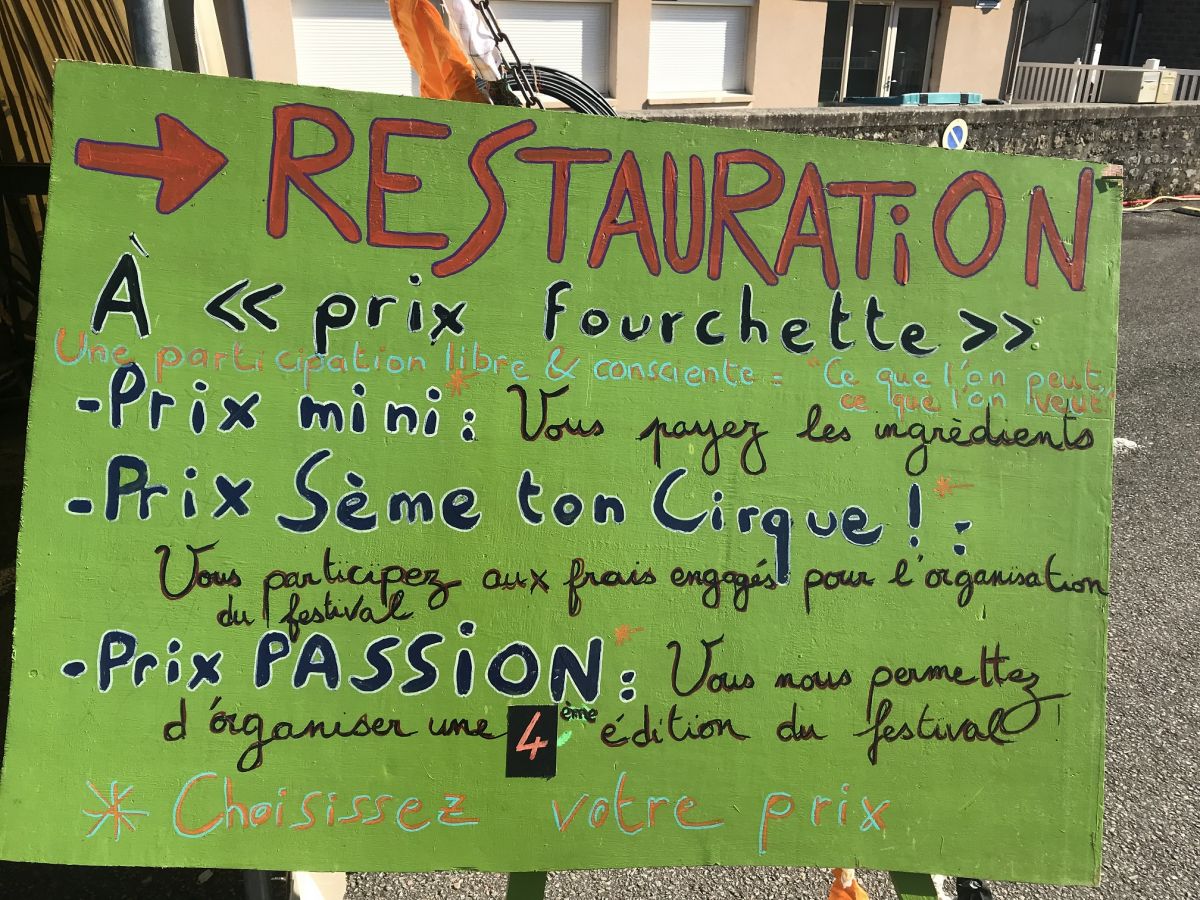 → RESTAURATiON
À << prix fourchette >>
Une participation libre & consciente = "Ce que l'on peut,
ce que l'on veut"
-Prix mini* : Vous payez les ingrédients
-Prix Sème ton Cirque ! * :
Vous participez aux frais engagés pour l'organisation
du festival
-Prix PASSiON * : Vous nous permettez
d'organiser une 4ème édition du festival
* Choisissez votre prix